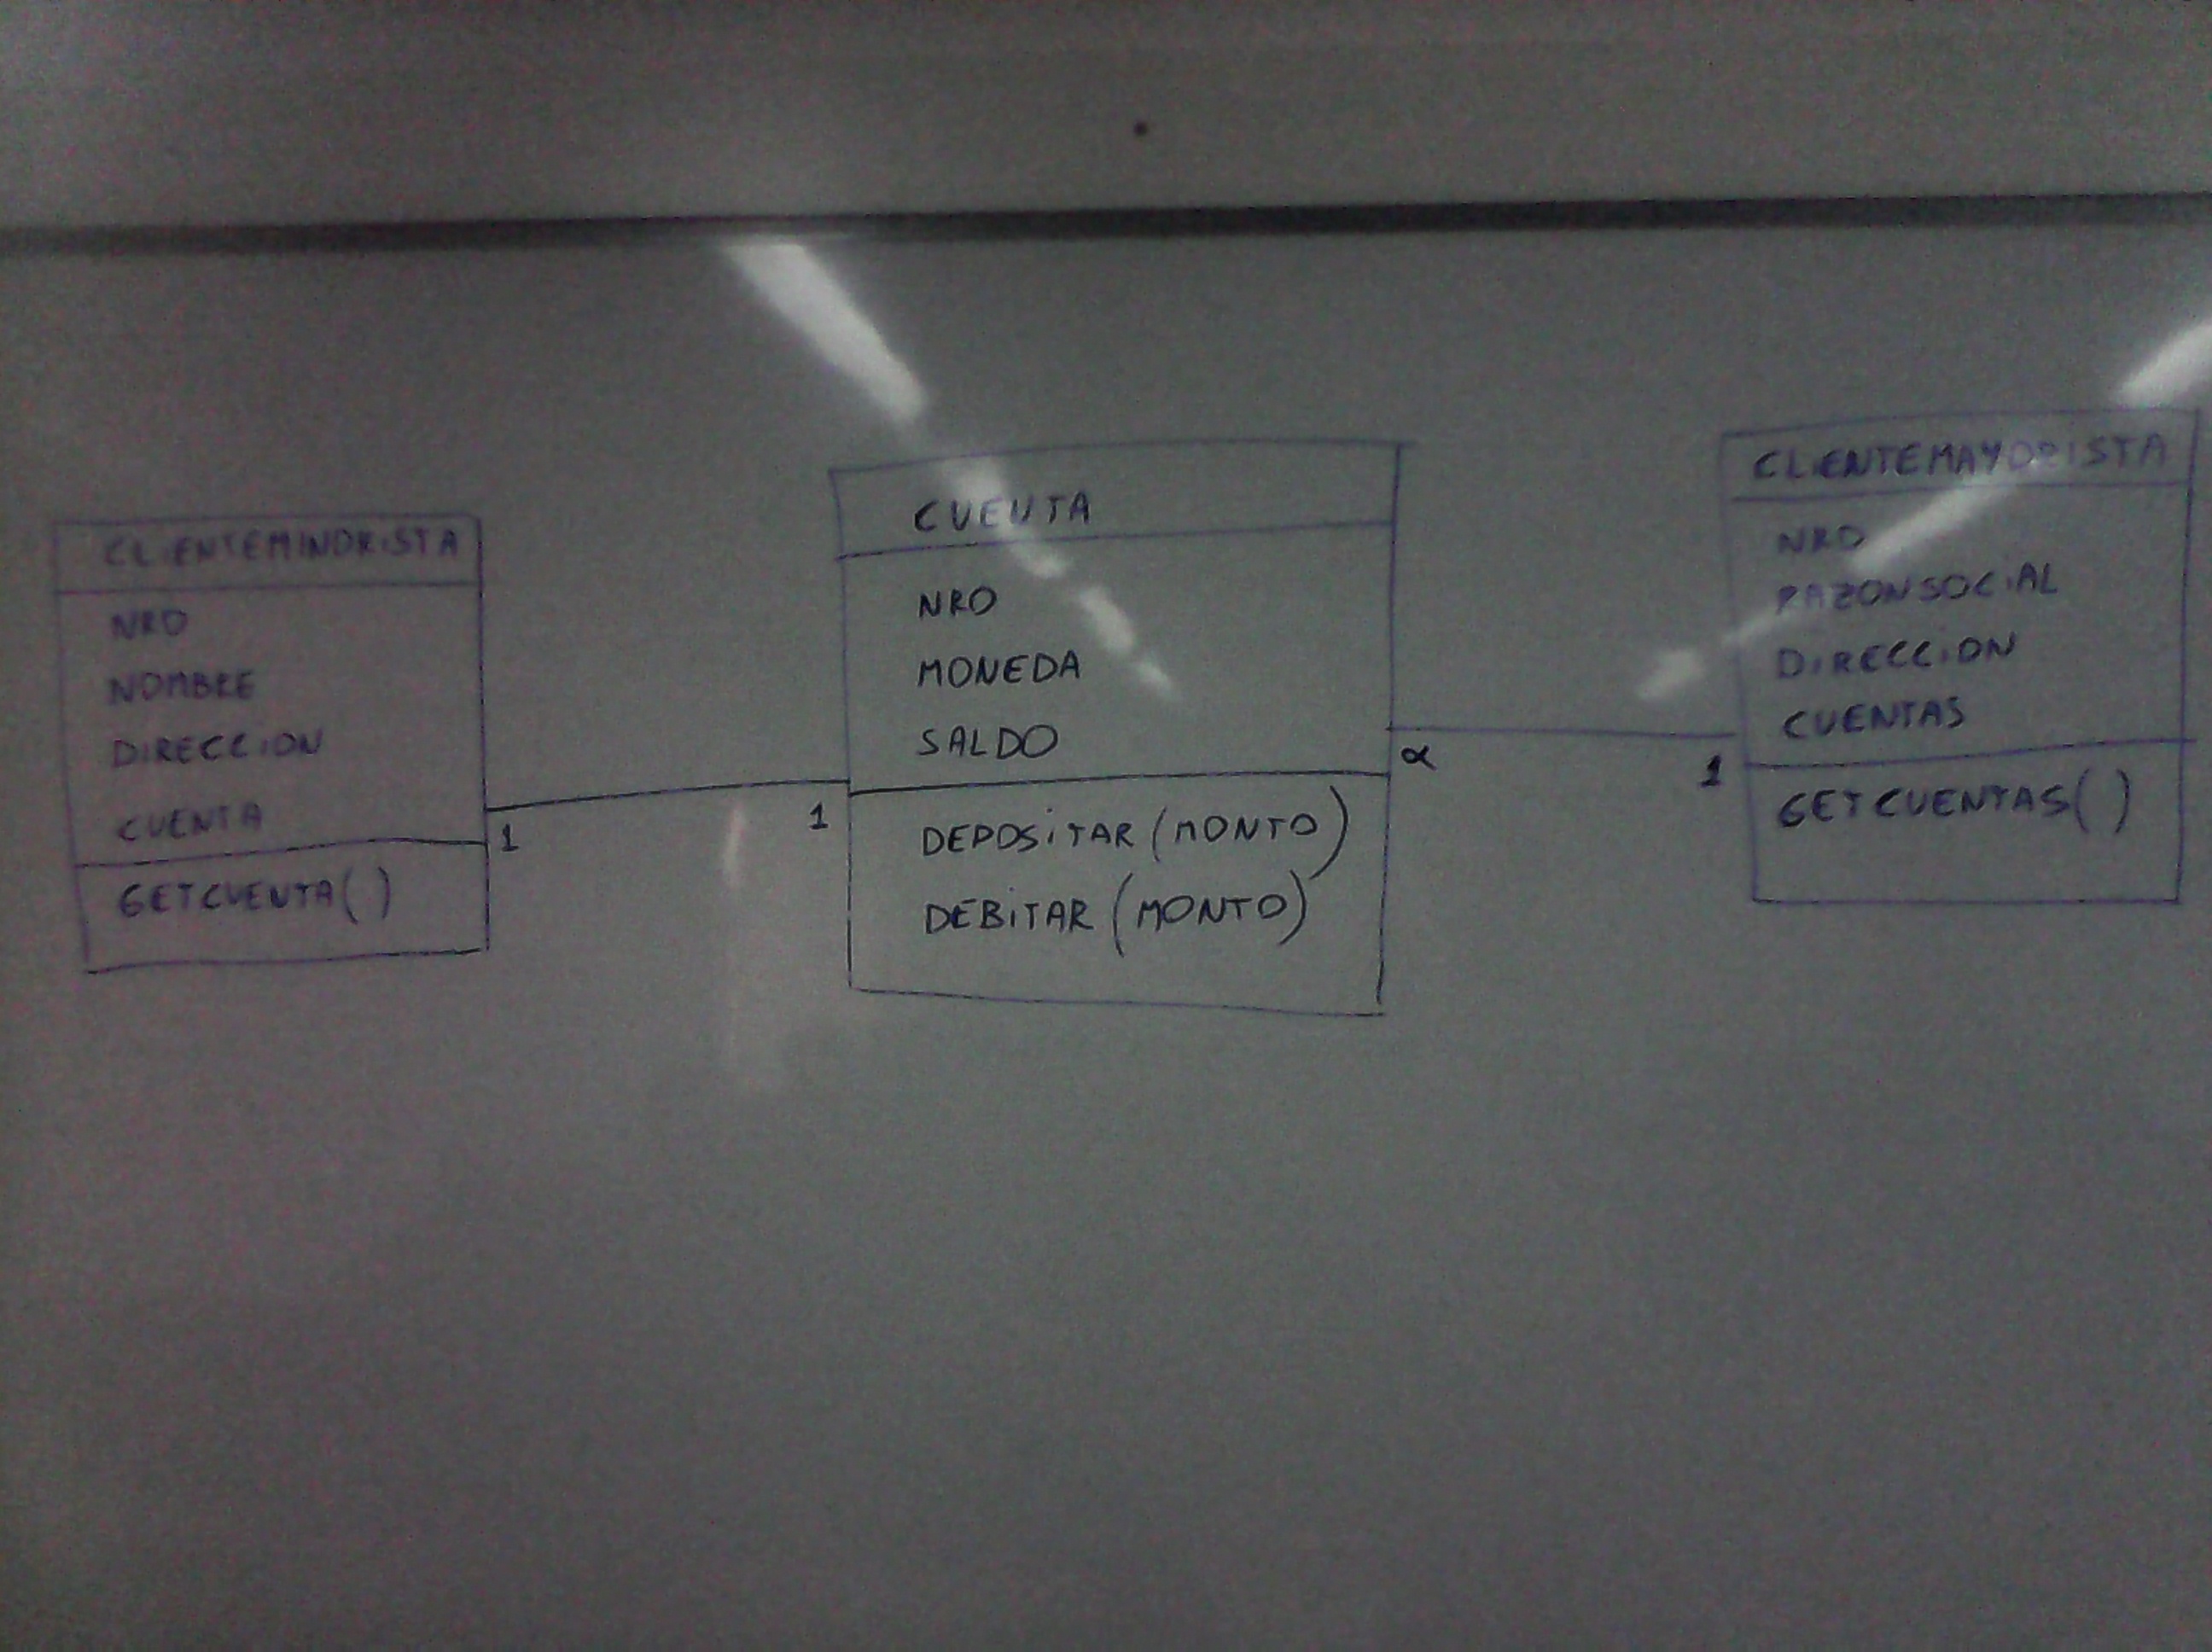 CLIENTEMINORISTA
NRO
NOMBRE
DIRECCION
CUENTA
GETCUENTA()
1
1
CUENTA
NRO
MONEDA
SALDO
DEPOSITAR (MONTO)
DEBITAR (MONTO)
∝
1
CLIENTEMAYORISTA
NRO
RAZONSOCIAL
DIRECCION
CUENTAS
GETCUENTAS()